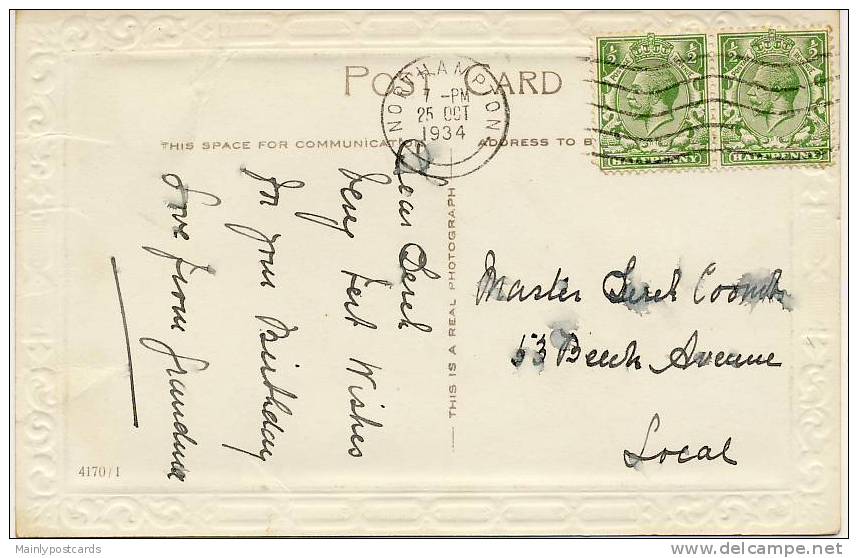 POST CARD
NORTHAMPTON
7 - PM
25 OCT
1934
1/2 1/2
HALFPENNY
1/2 1/2
HALFPENNY
THIS SPACE FOR COMMUNICATION
ADDRESS TO B
THIS IS A REAL PHOTOGRAPH
Dear Derek
Very Best Wishes
for your Birthday
Love from Grandma
Master Derek Coombs
53 Beech Avenue
Local
4170/1
Mainlypostcards
delcampe.net